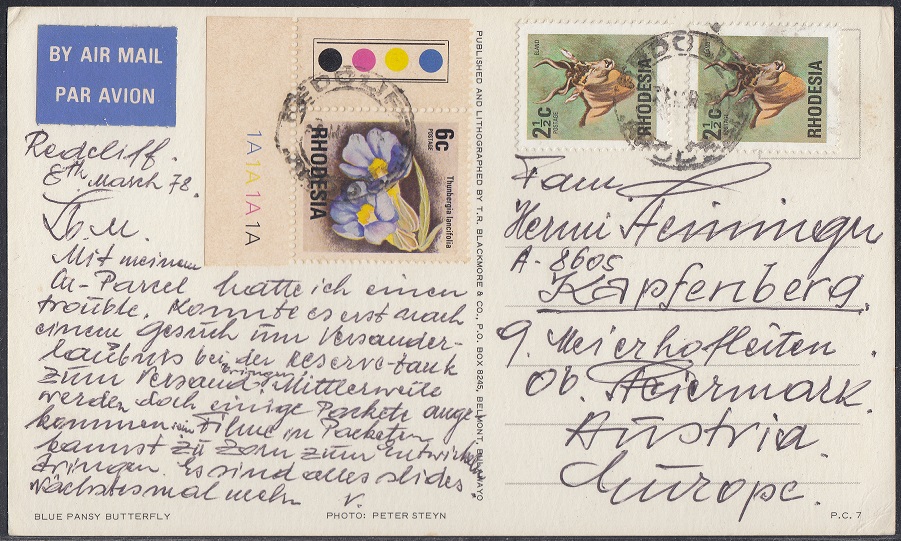 BY AIR MAIL
PAR AVION
1A 1A 1A 1A
6c
POSTAGE
RHODESIA
Thunbergia lancifolia
ELAND
2½c
POSTAGE
RHODESIA
ELAND
2½c
POSTAGE
RHODESIA
Redcliff.
8th March 78.
Mit meinem
Parcel hatte ich einen
trouble. Konnte es erst nach
einem Gesuch um Versander-
laubnis bei der Reserve-Bank
zum Versand bringen. Mittlerweile
werden doch einige Packete ange
kommen sein. Filme in Packeten
kannst zu Zorn zum entwickeln
bringen. Es sind alles slides
Nächstesmal mehr. V.
BLUE PANSY BUTTERFLY
PHOTO: PETER STEYN
PUBLISHED AND LITHOGRAPHED BY T.R. BLACKMORE & CO., P.O. BOX 8245, BELMONT, BULAWAYO
Fam.
Hermi
A-8605
Kapfenberg.
9. Meierhofleiten.
Ob. Steiermark.
Austria
Europe.
P.C. 7